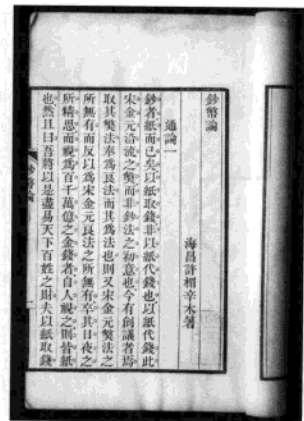 鈔幣論
海昌許楣辛木著
通論一
鈔者紙而已矣以紙取錢非以紙代錢也以紙代錢此
宋金元沿流之獘而非鈔法之初意也今有創議者焉
取其獘法奉爲良法而其爲法也則又宋金元獘法之
所無有而反以爲宋金元良法之所無有卒其日夜之
所精思而視爲百千萬億之金錢者自人視之則皆紙
也然且曰吾將以是盡易天下百姓之財夫以紙取錢
鈔幣論
一